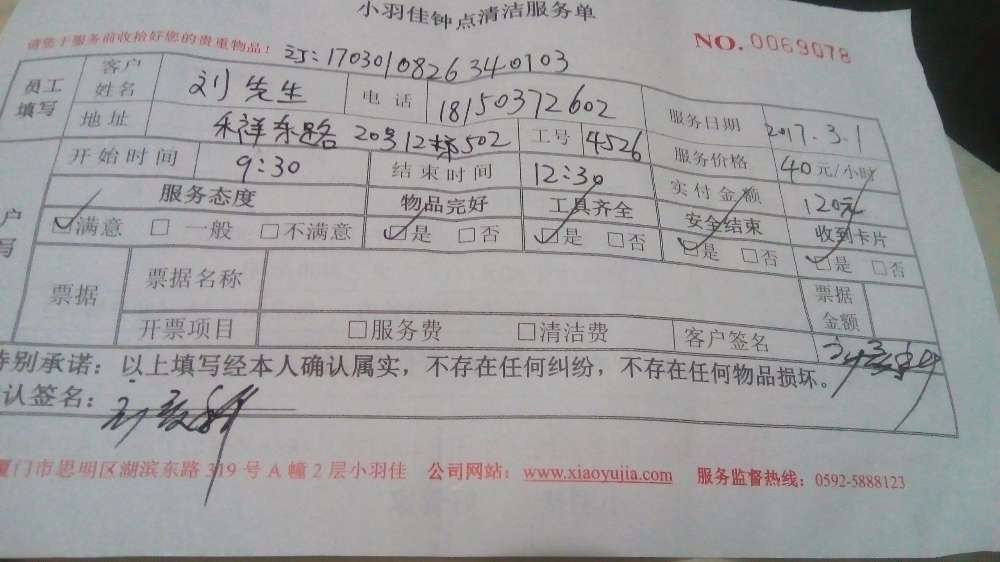 小羽佳钟点清洁服务单
请您于服务前收拾好您的贵重物品！ NO. 0069078
订: 1703010826340103
员工填写 客户姓名 刘先生 电话 18150372602 服务日期 2017.3.1
地址 禾祥东路 20号12梯502 工号 4526 服务价格 40元/小时
开始时间 9:30 结束时间 12:30 实付金额 120元
户写 服务态度 物品完好 工具齐全 安全结束 收到卡片
☑满意 □一般 □不满意 ☑是 □否 ☑是 □否 ☑是 □否 ☑是 □否
票据 票据名称 票据金额
开票项目 □服务费 □清洁费 客户签名
特别承诺：以上填写经本人确认属实，不存在任何纠纷，不存在任何物品损坏。
认签名：
厦门市思明区湖滨东路319号A幢2层小羽佳 公司网站：www.xiaoyujia.com 服务监督热线：0592-5888123